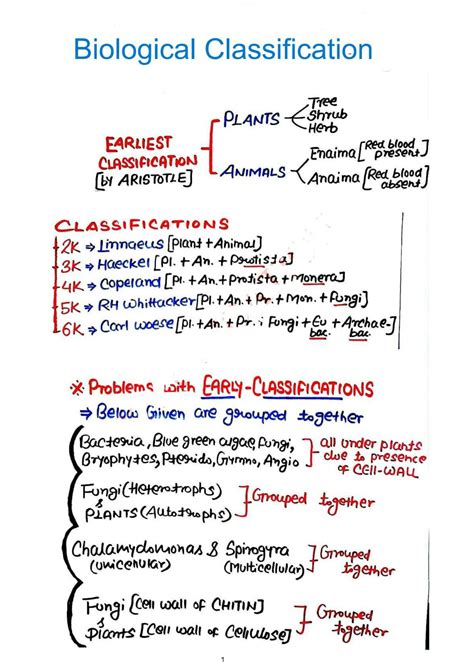 Biological Classification
EARLIEST CLASSIFICATION [by ARISTOTLE]
PLANTS
Tree
Shrub
Herb
ANIMALS
Enaima [Red blood present]
Anaima [Red blood absent]
CLASSIFICATIONS
2K ⇒ Linnaeus [Plant + Animal]
3K ⇒ Haeckel [Pl. + An. + Protista]
4K ⇒ Copeland [Pl. + An. + Protista + Monera]
5K ⇒ RH Whittacker [Pl. + An. + Pr. + Mon. + Fungi]
6K ⇒ Carl woese [Pl. + An. + Pr. ; Fungi + Eu bac. + Archae- bac.]
* Problems with EARLY-CLASSIFICATIONS
⇒ Below Given are grouped together
Bacteria, Blue green algae, Fungi,
Bryophytes, Pterido, Gymno, Angio
all under plants
due to presence
of CELL-WALL
Fungi (Heterotrophs)
&
PLANTS (Autotrophs)
Grouped
together
Chalamydomonas & Spirogyra
(Unicellular) (Multicellular)
Grouped
together
Fungi [Cell wall of CHITIN]
&
Plants [Cell wall of Cellulose]
Grouped
together
1